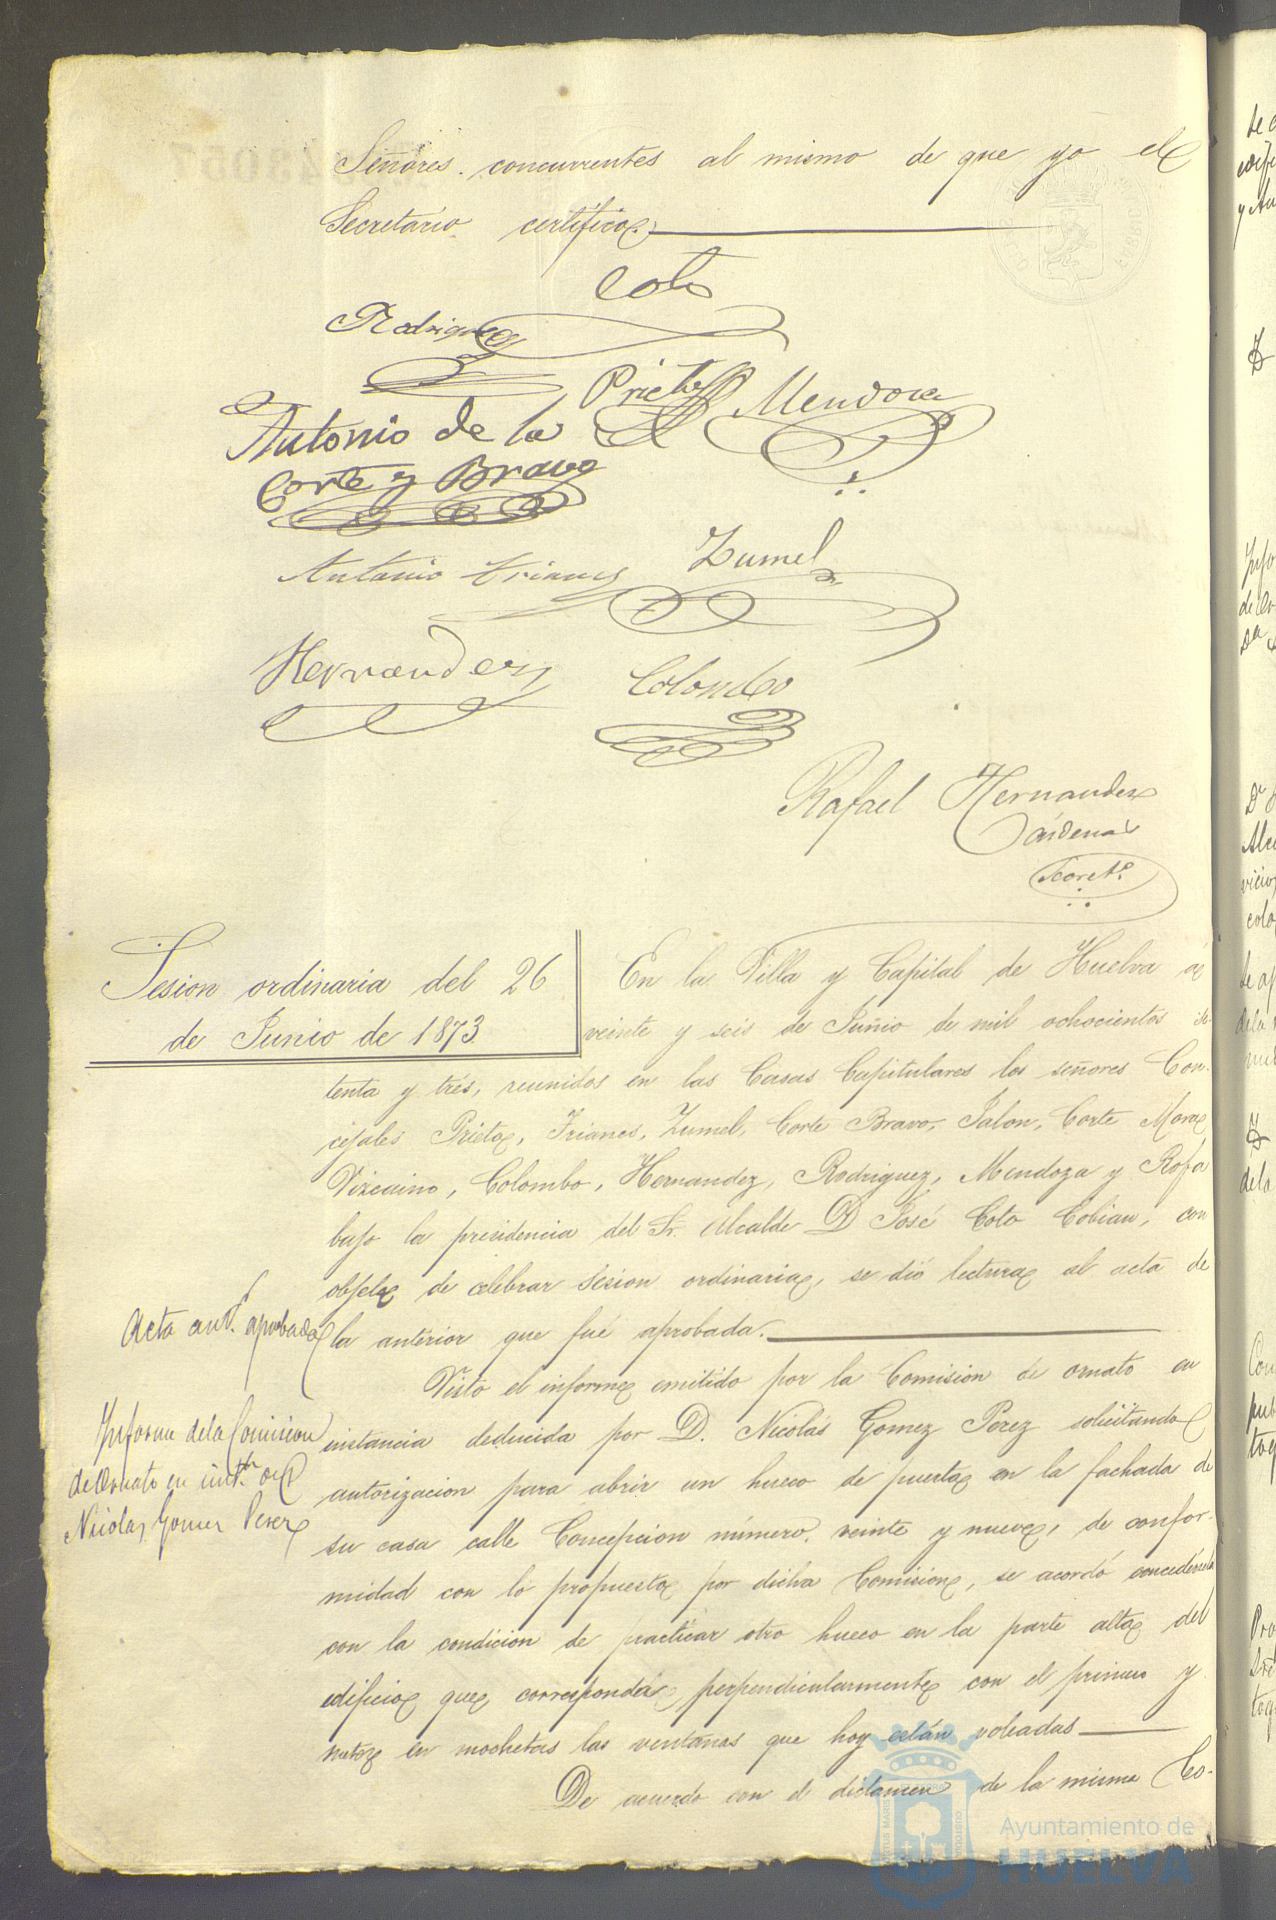 Señores concurrentes al mismo de que yo el
Secretario certifico.
Coto
Rodriguez
Prieto Mendoza
Antonio de la
Corte y Bravo
Antonio Trianes Zumel
Hernandez Colombo
Rafael Hernandez
Cárdenas
Secret.º
Sesion ordinaria del 26
de Junio de 1873
En la Villa y Capital de Huelva á
veinte y seis de Junio de mil ochocientos se-
tenta y trés, reunidos en las Casas Capitulares los señores Con-
cejales Prieto, Trianes, Zumel, Corte Bravo, Jalon, Corte Mora
Vizcaino, Colombo, Hernandez, Rodriguez, Mendoza y Rofa
bajo la presidencia del Sr. Alcalde D José Coto Cobian, con
objeto de celebrar Sesion ordinaria, se dió lectura al acta de
Acta ant.r aprobada
la anterior que fué aprobada.
Visto el informe emitido por la Comision de ornato en
Informe dela Comision
de Ornato en inst.ª de
Nicolas Gomez Perez
instancia deducida por D. Nicolás Gomez Perez solicitando
autorizacion para abrir un hueco de puerta en la fachada de
su casa calle Concepcion número, veinte y nueve, de confor-
midad con lo propuesto por dicha Comision, se acordó concedérsela
con la condicion de practicar otro hueco en la parte alta del
edificio que corresponda perpendicularmente con el primero y
meter en mochetas las ventanas que hoy están voleadas
De acuerdo con el dictamen de la misma Co-
Ayuntamiento de
HUELVA